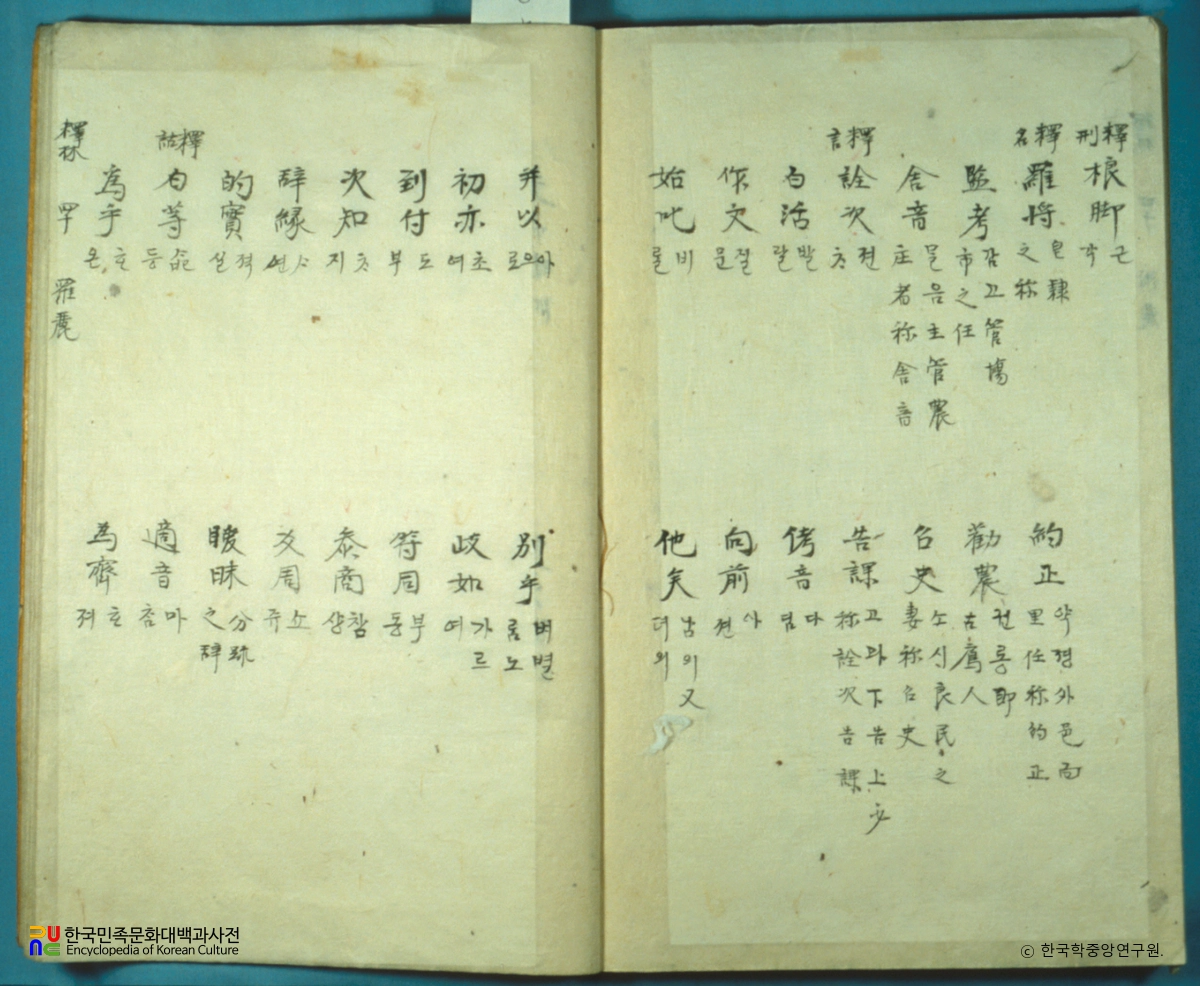 釋刑
根脚 근각
釋名
羅將 皂隷之称
監考 감고管場市之任
舍音 믈음主管農庄者称舍音
釋言
詮次 젼ᄎᆞ
白活 발괄
作文 질문
始叱 비롤
約正 약졍外邑面里任称約正
勸農 권롱即古鷹人
召史 소시良民之妻称召史
告課 고과下告上必称詮次告課
侤音 다딤
向前 아젼
他矣 남의又뎌의
幷以 아으로
初亦 초여
到付 도부
次知 ᄎᆞ지
辭縁 ᄉᆞ연
的實 젹실
釋詁
白等
為乎 ᄒᆞ온
別乎 벼별롬노
歧如 가르여
符同 부동
叅商 참상
爻周 쇼쥬
曖昧 分疏之辞
適音 마춤
為齊 ᄒᆞ져
釋林 羅麗
한국민족문화대백과사전
Encyclopedia of Korean Culture
ⓒ 한국학중앙연구원.